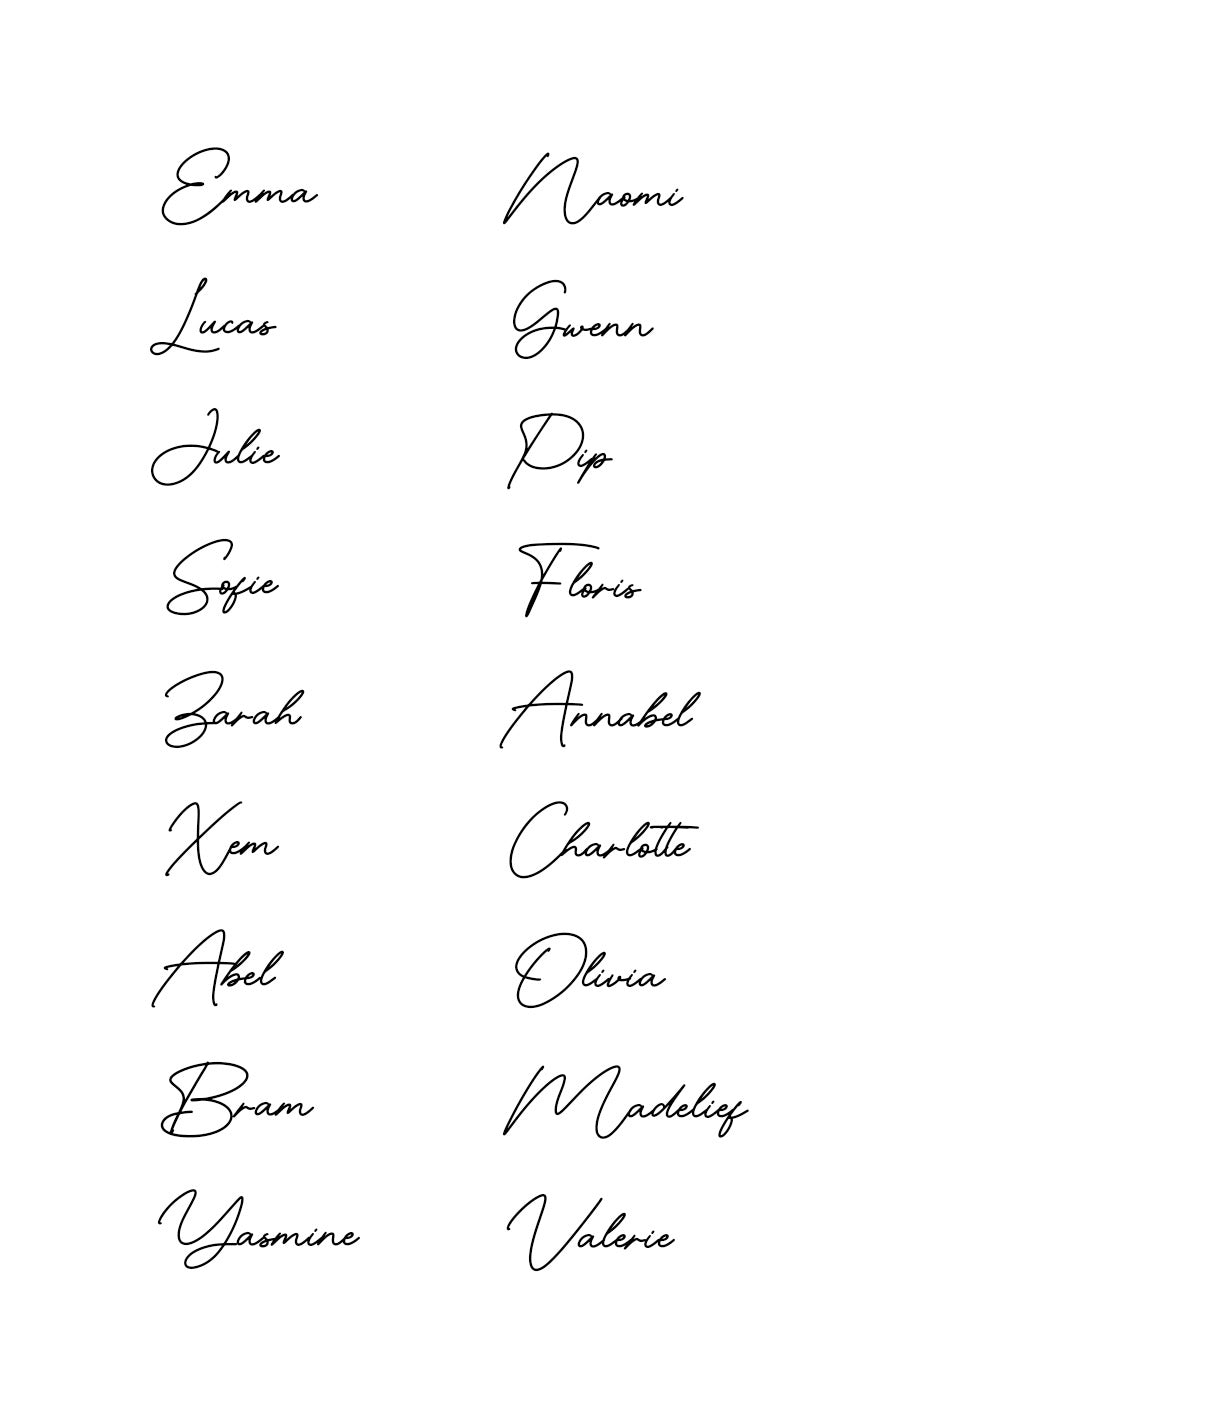 Emma
Lucas
Julie
Sofie
Zarah
Xem
Abel
Bram
Yasmine
Naomi
Gwenn
Pip
Floris
Annabel
Charlotte
Olivia
Madelief
Valerie